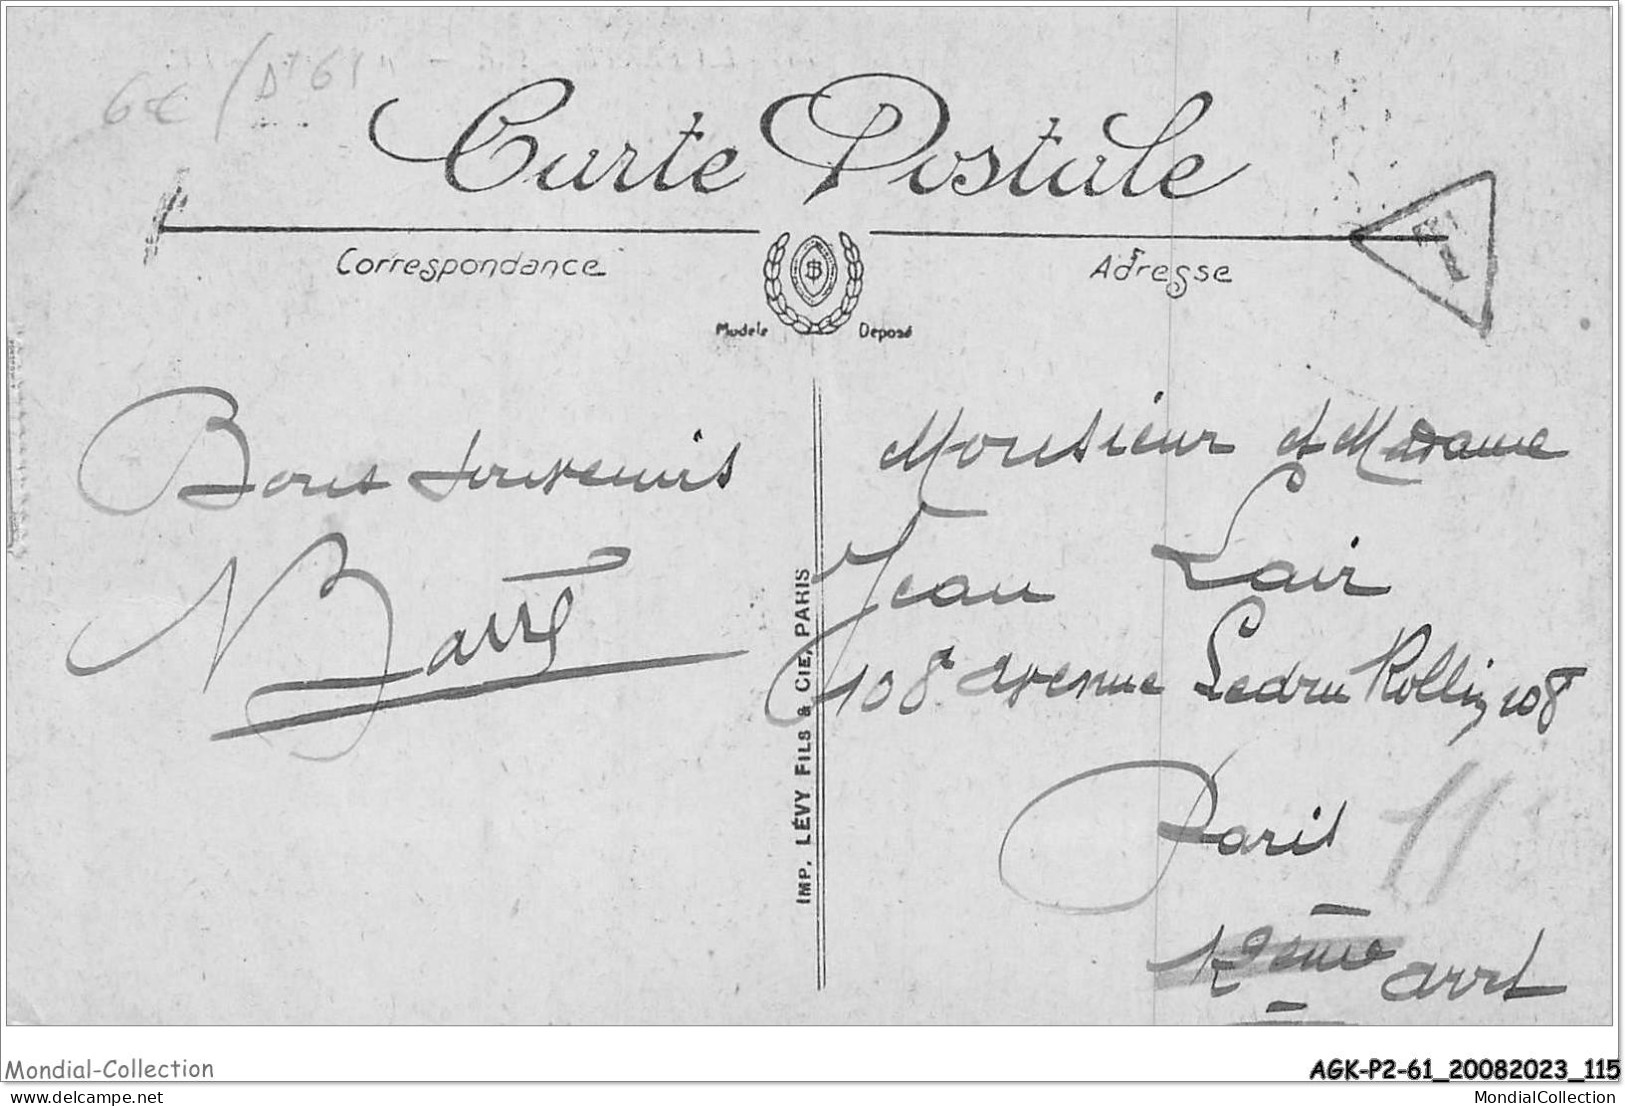 6€ (Dt 61
Carte Postale
Correspondance
Adresse
T
Modèle Déposé
Bons souvenirs
Barré
IMP. LÉVY FILS & CIE, PARIS
Monsieur et Madame
Jean Lair
108 avenue Ledru Rollin 108
Paris 11
12ème arrt
Mondial-Collection
AGK-P2-61_20082023_115
delcampe.net
MondialCollection